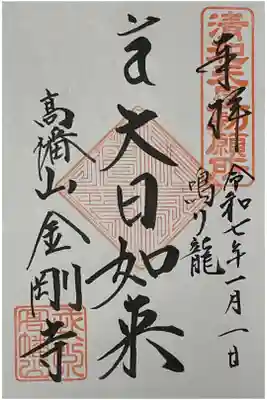 奉拝
令和七年一月一日
鳴り龍
大日如来
高幡山金剛寺